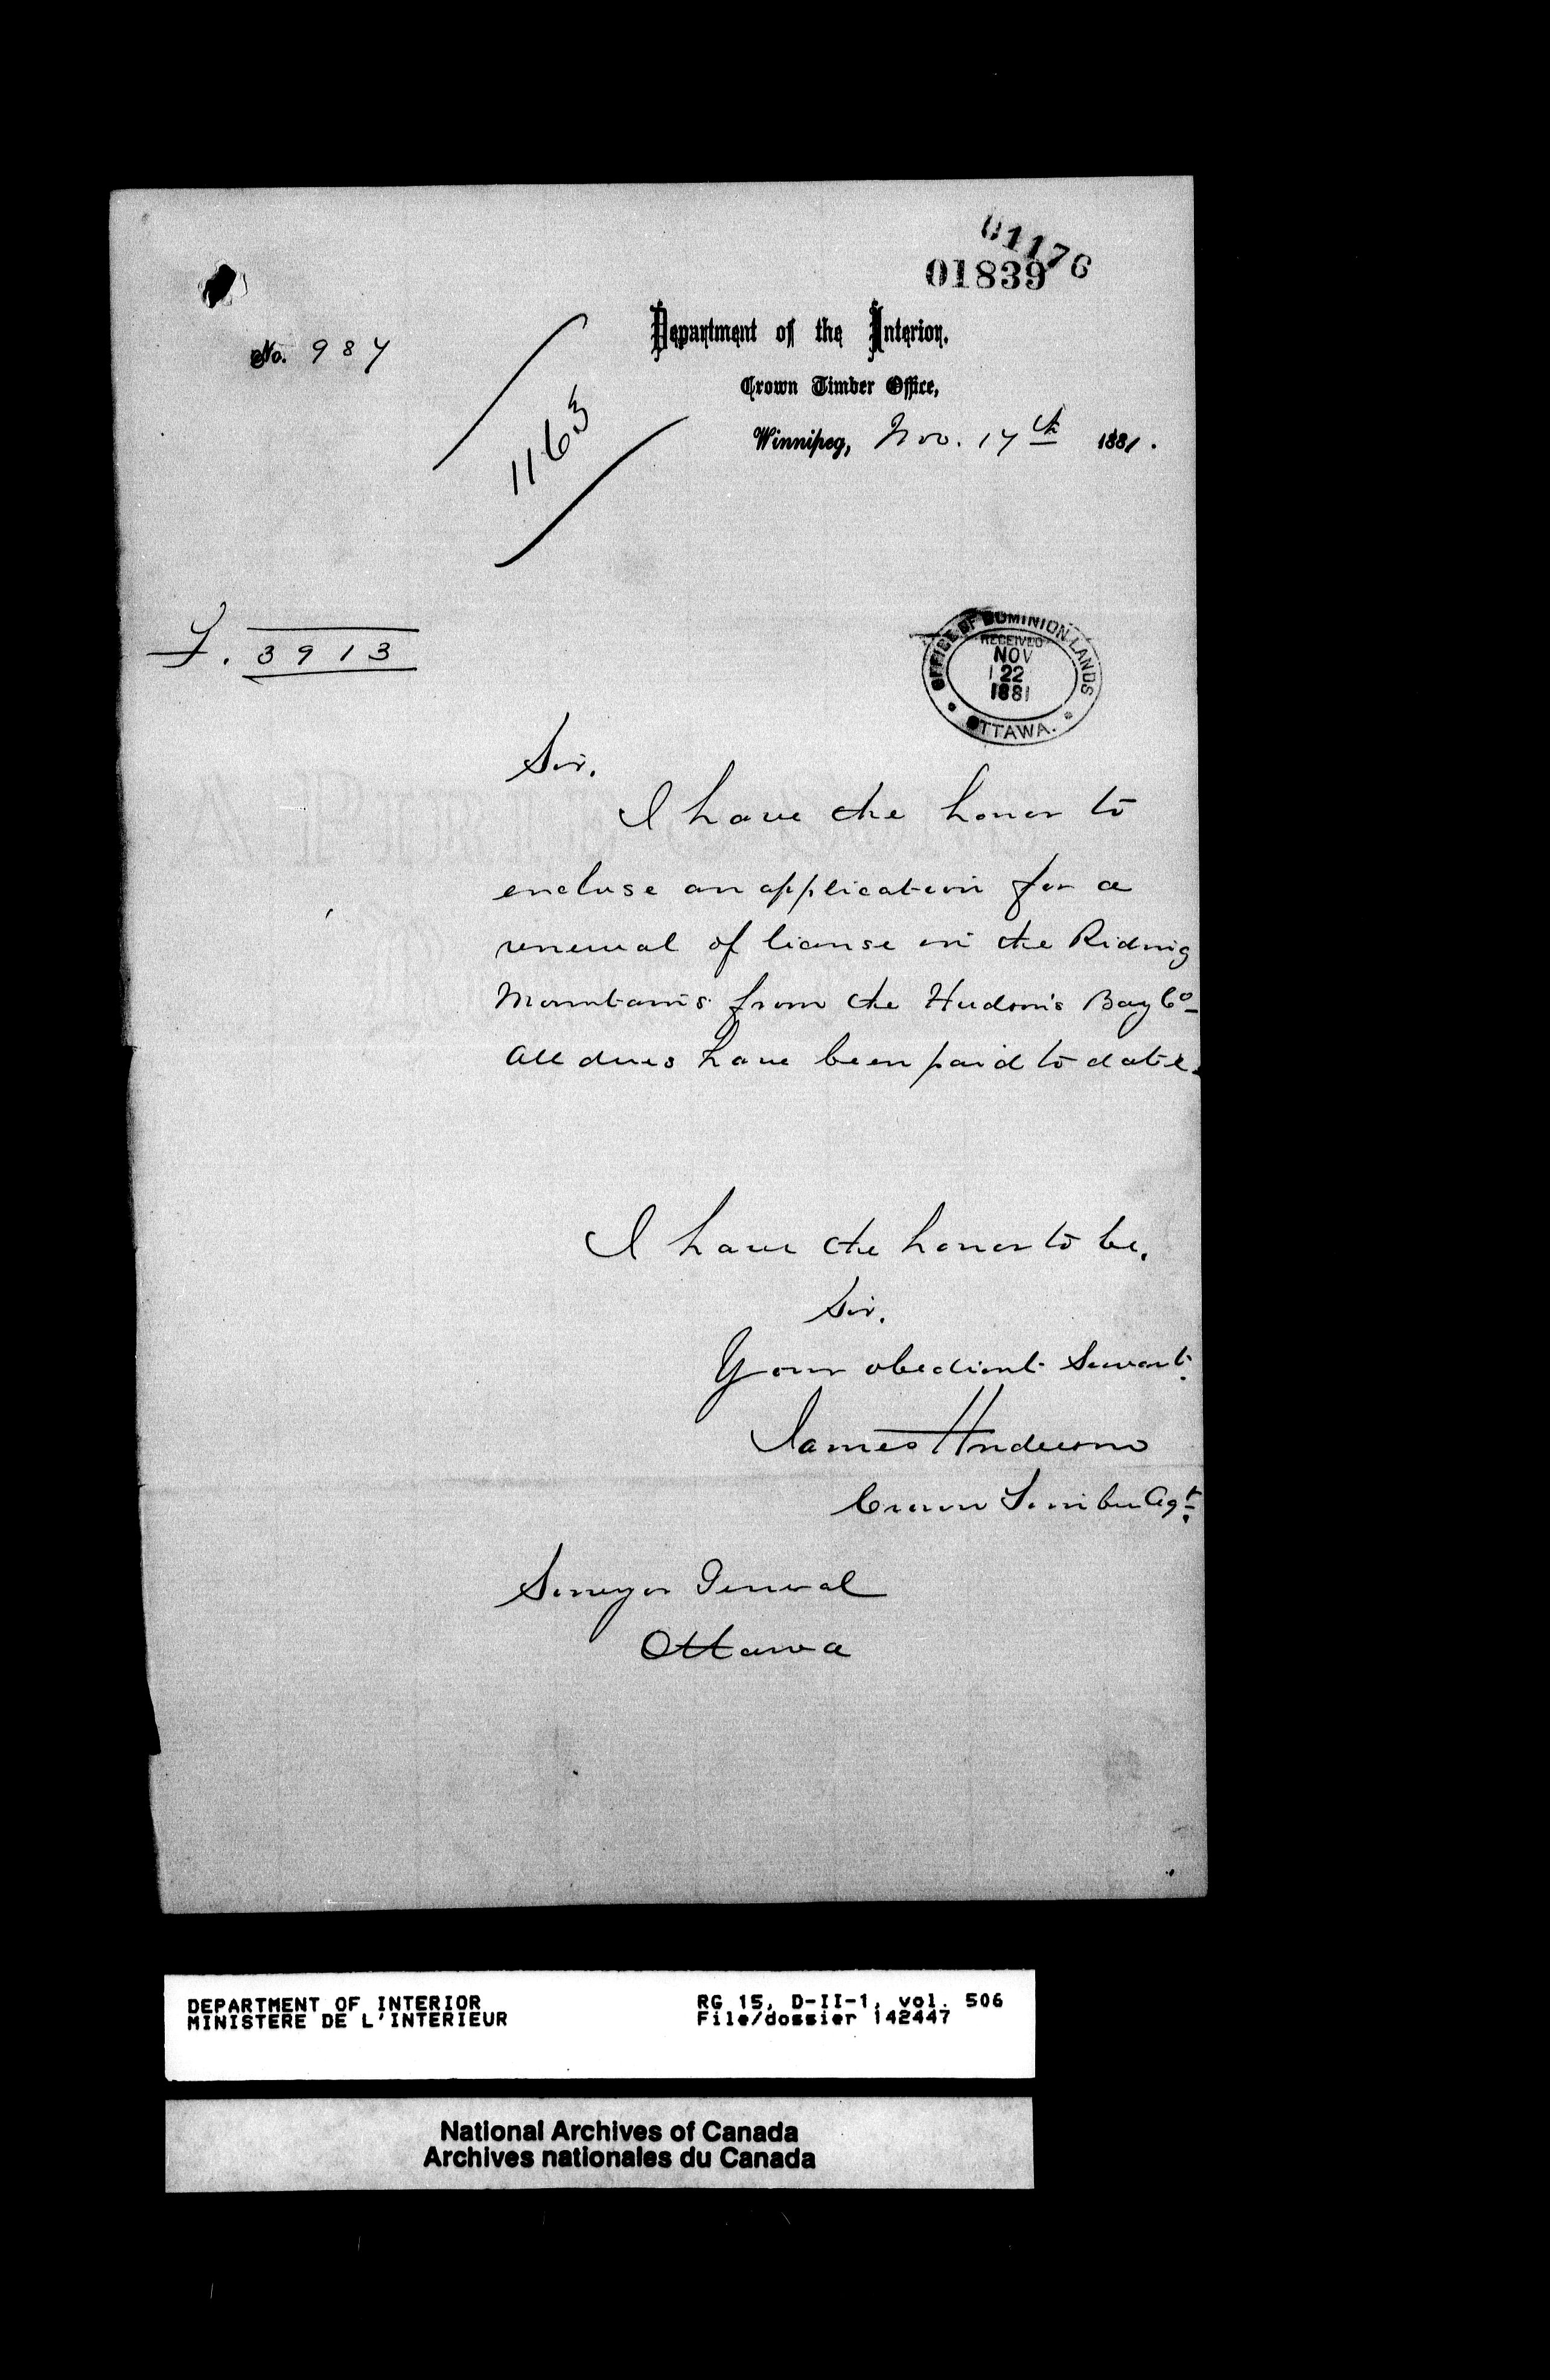 01176
01839
Department of the Interior,
Crown Timber Office,
No. 987
1163
Winnipeg, Nov. 17th 1881.
T. 3913
OFFICE OF DOMINION LANDS
RECEIVED
NOV
22
1881
OTTAWA.
Sir.
I have the honor to
enclose an application for a
renewal of license in the Riding
Mountains from the Hudson's Bay Co
All dues have been paid to date.
I have the honor to be.
Sir.
Your obedient Servant.
James Anderson
Crown Timber Agt.
Surveyor General
Ottawa
DEPARTMENT OF INTERIOR
MINISTERE DE L'INTERIEUR
RG 15, D-II-1, vol. 506
File/dossier 142447
National Archives of Canada
Archives nationales du Canada